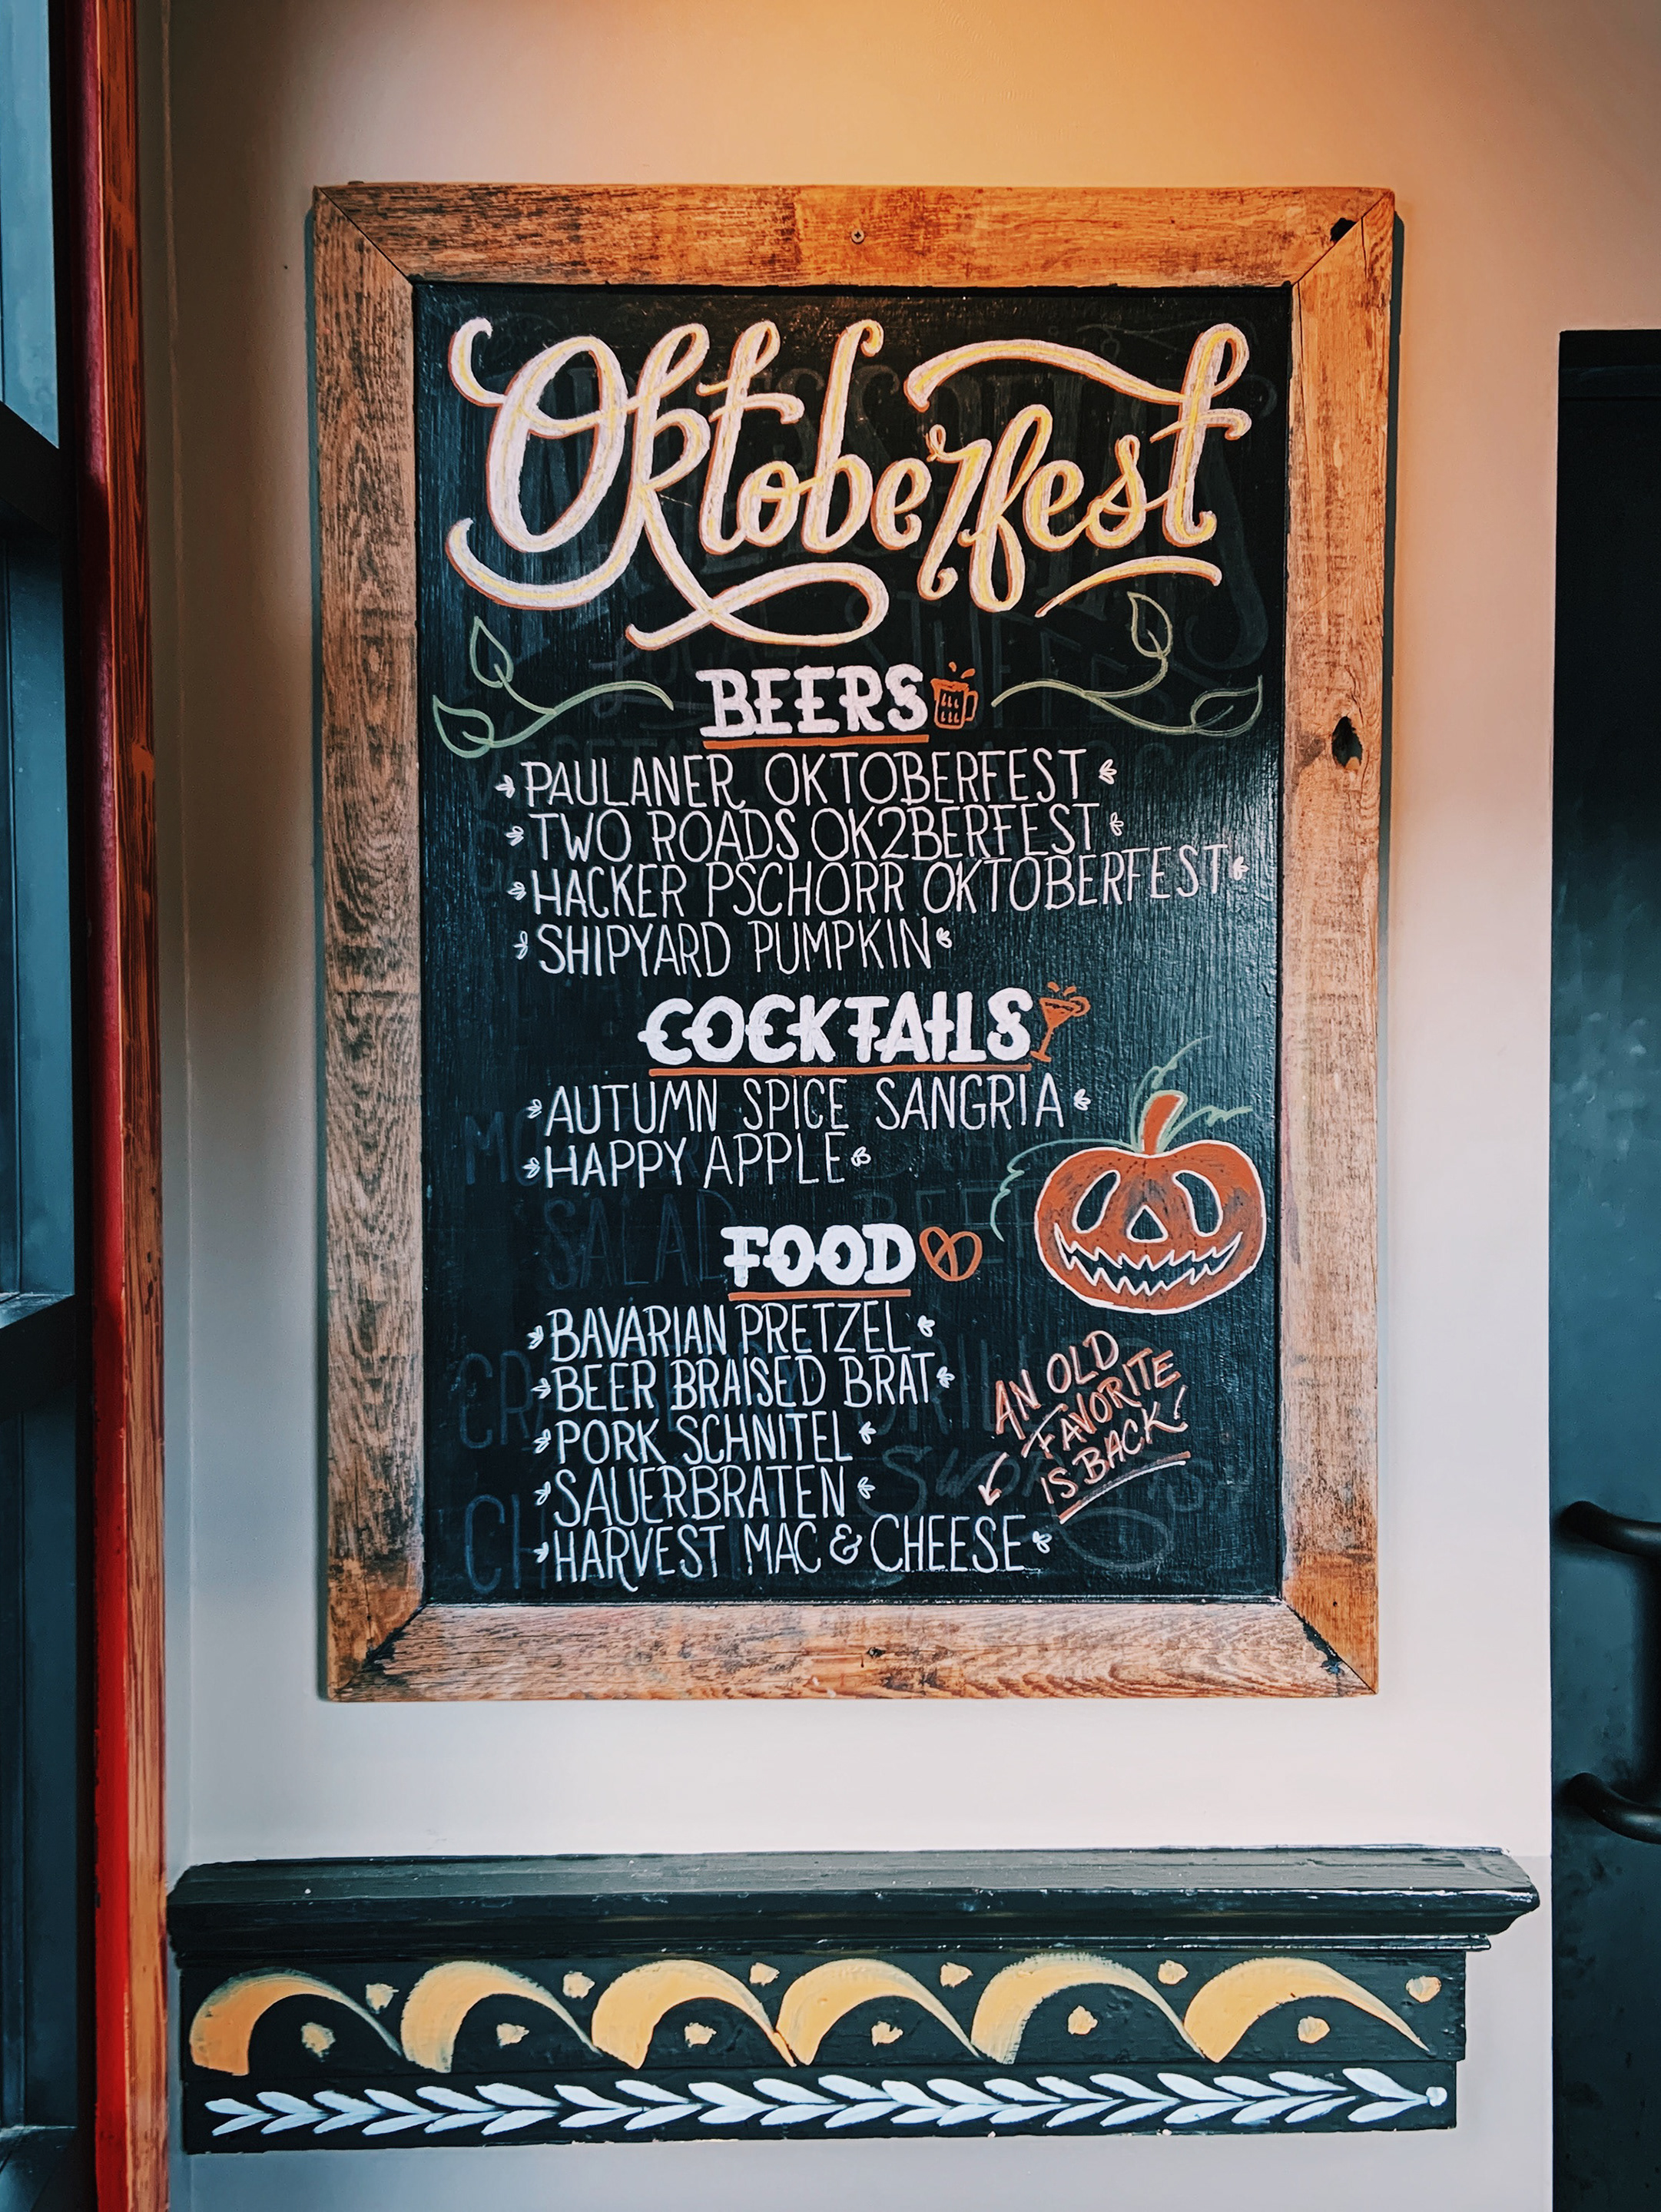 Oktoberfest
BEERS
PAULANER OKTOBERFEST
TWO ROADS OK2BERFEST
HACKER PSCHORR OKTOBERFEST
SHIPYARD PUMPKIN
COCKTAILS
AUTUMN SPICE SANGRIA
HAPPY APPLE
FOOD
BAVARIAN PRETZEL
BEER BRAISED BRAT
PORK SCHNITEL
SAUERBRATEN
HARVEST MAC & CHEESE
AN OLD
FAVORITE
IS BACK!